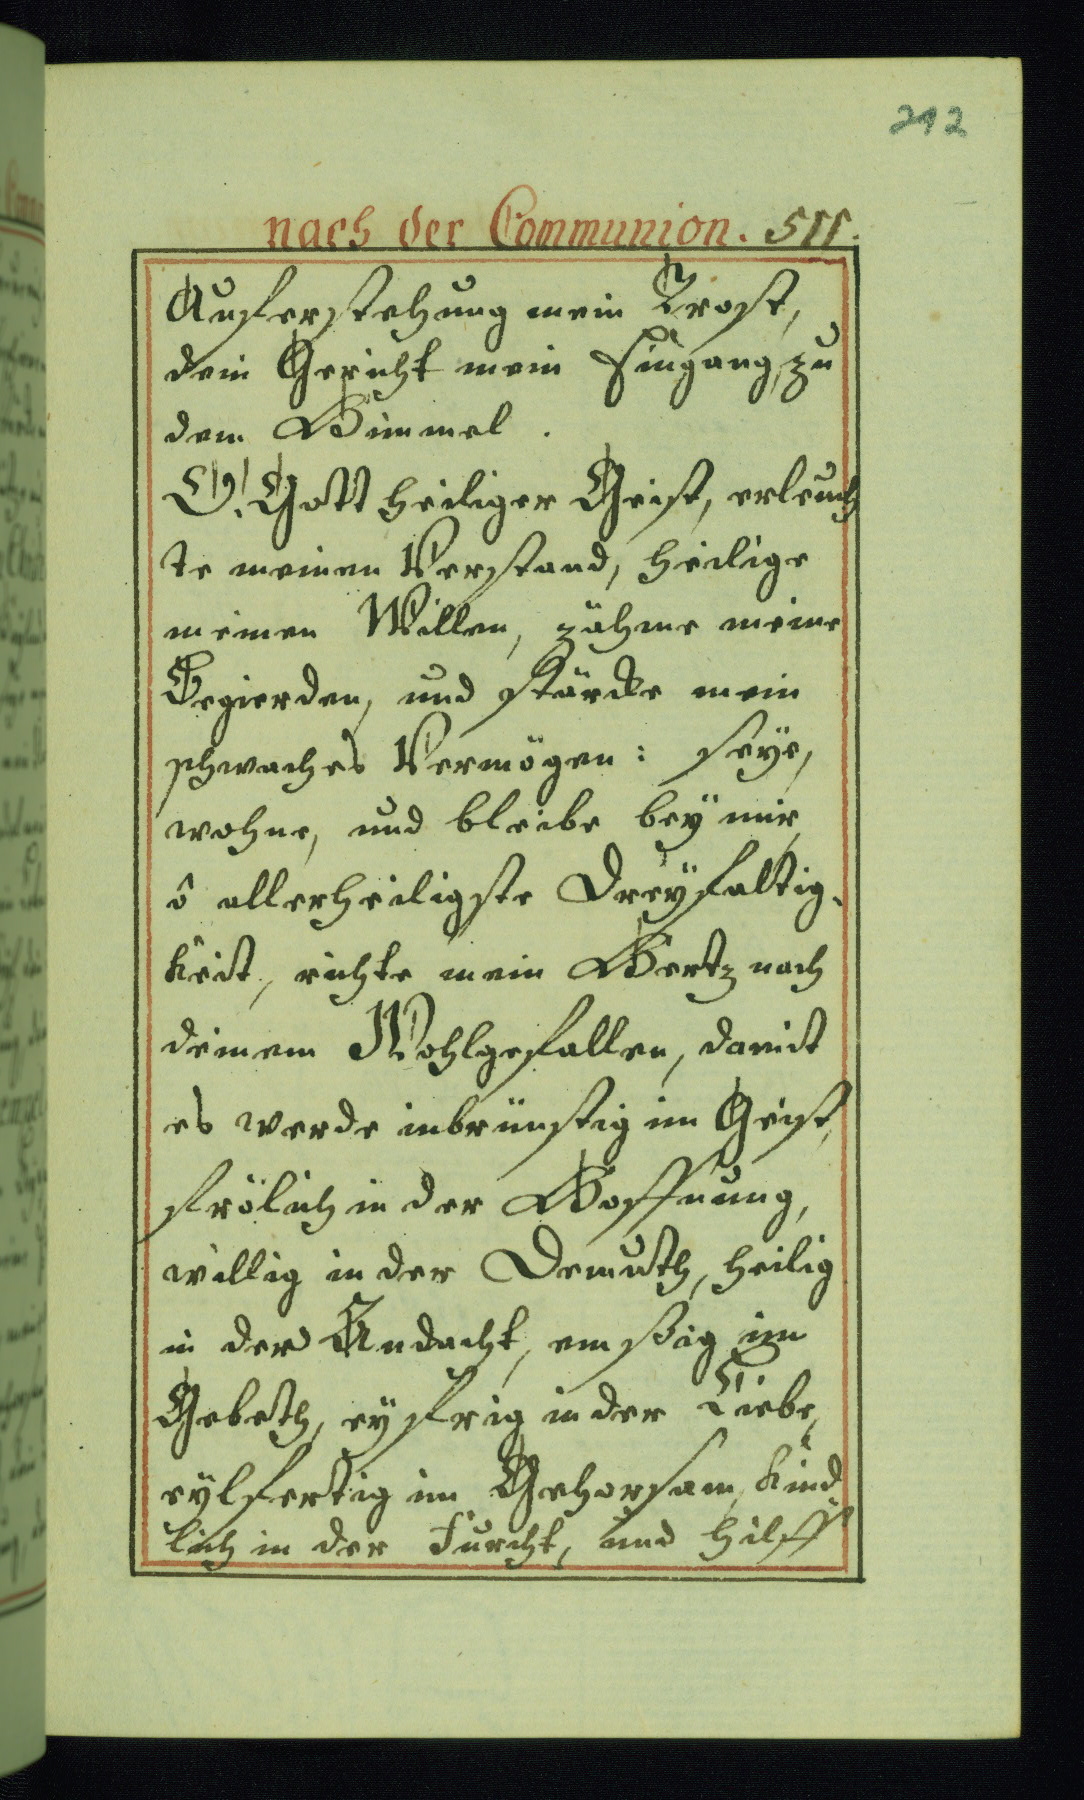 292
nach der Communion. 511.
Auferstehung mein Trost,
dein Gericht mein Eingang zu
dem Himmel.
O! Gott heiliger Geist, erleuch
te meinen Verstand, heilige
meinen Willen, zähme meine
Begierden, und stärcke mein
schwaches Vermögen: seÿe,
wohne, und bleibe beÿ mir,
ô allerheiligste Dreÿfaltig-
keit, richte mein Hertz nach
deinem Wohlgefallen, damit
es werde inbrünstig im Geist,
frölich in der Hoffnung,
willig in der Demuth, heilig
in der Andacht, emßig im
Gebeth, eÿfrig in der Liebe,
eÿlfertig im Gehorsam, kind
lich in der Furcht, und hilff